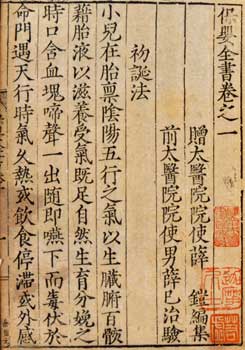 保嬰全書卷之一
贈太醫院院使薛 鎧編集
前太醫院院使男薛己治驗
初誕法
小兒在胎禀陰陽五行之氣以生臟腑百骸
藉胎液以滋養受氣既足自然生育分娩之
時口含血塊啼聲一出随即嚥下而毒伏於
命門遇天行時氣久熱或飲食停滯或外感